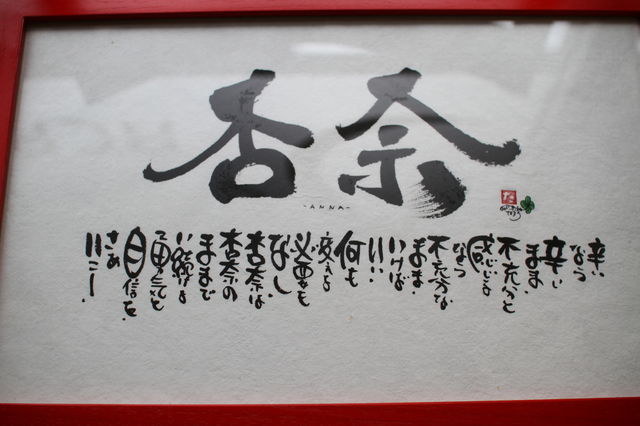 杏奈
-ANNA-
辛い
なら
辛い
まま
不充分と
感じる
なら
不充分な
まま
いけば
いい
何も
変える
必要も
なし
杏奈は
杏奈の
ままで
い続ける
勇気も
自信を
さあ
行こー